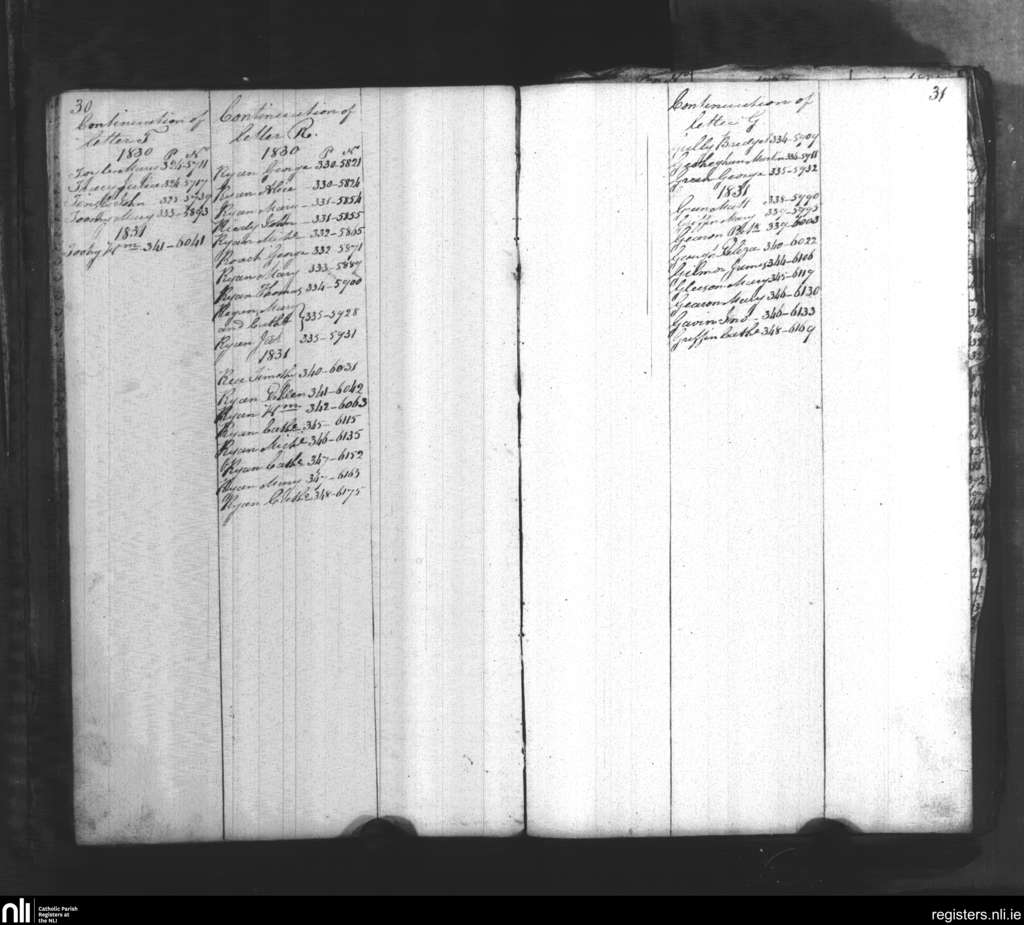 30
Continuation of
letter T
1830
P N
324-5711
324-5717
John 325-5739
Toohy Mary 333-5893
1831
Toohy Wm 341-6041
Continuation of
letter R.
1830
P N
Ryan George 330-5821
Ryan Alice 330-5824
Ryan Mary 331-5854
Ready John 331-5855
Ryan Michl 332-5865
Roach George 332-5871
Ryan Mary 333-5887
Ryan Thomas 334-5900
Mary
and Cathe } 335-5928
Ryan Jas 335-5931
1831
Rice Timothy 340-6031
Ryan Ellen 341-6042
Ryan Wm 342-6063
Ryan Cathe 345-6115
Ryan Michl 346-6135
Ryan Cathe 347-6152
Ryan Mary 347-6163
Ryan Cathe 348-6175
31
Continuation of
letter G
Bridget 334-5909
Geohaghan Martin 334-5911
Green George 335-5932
1831
Green Matt 338-5990
Griffin Mary 338-5993
Gearon 339-6003
Eliza 340-6022
Gilmor James 344-6106
Gleeson Mary 345-6119
Gearon Mary 346-6130
Gavin Jno 346-6133
Griffin Cathe 348-6169
nli
Catholic Parish
Registers at
the NLI
registers.nli.ie